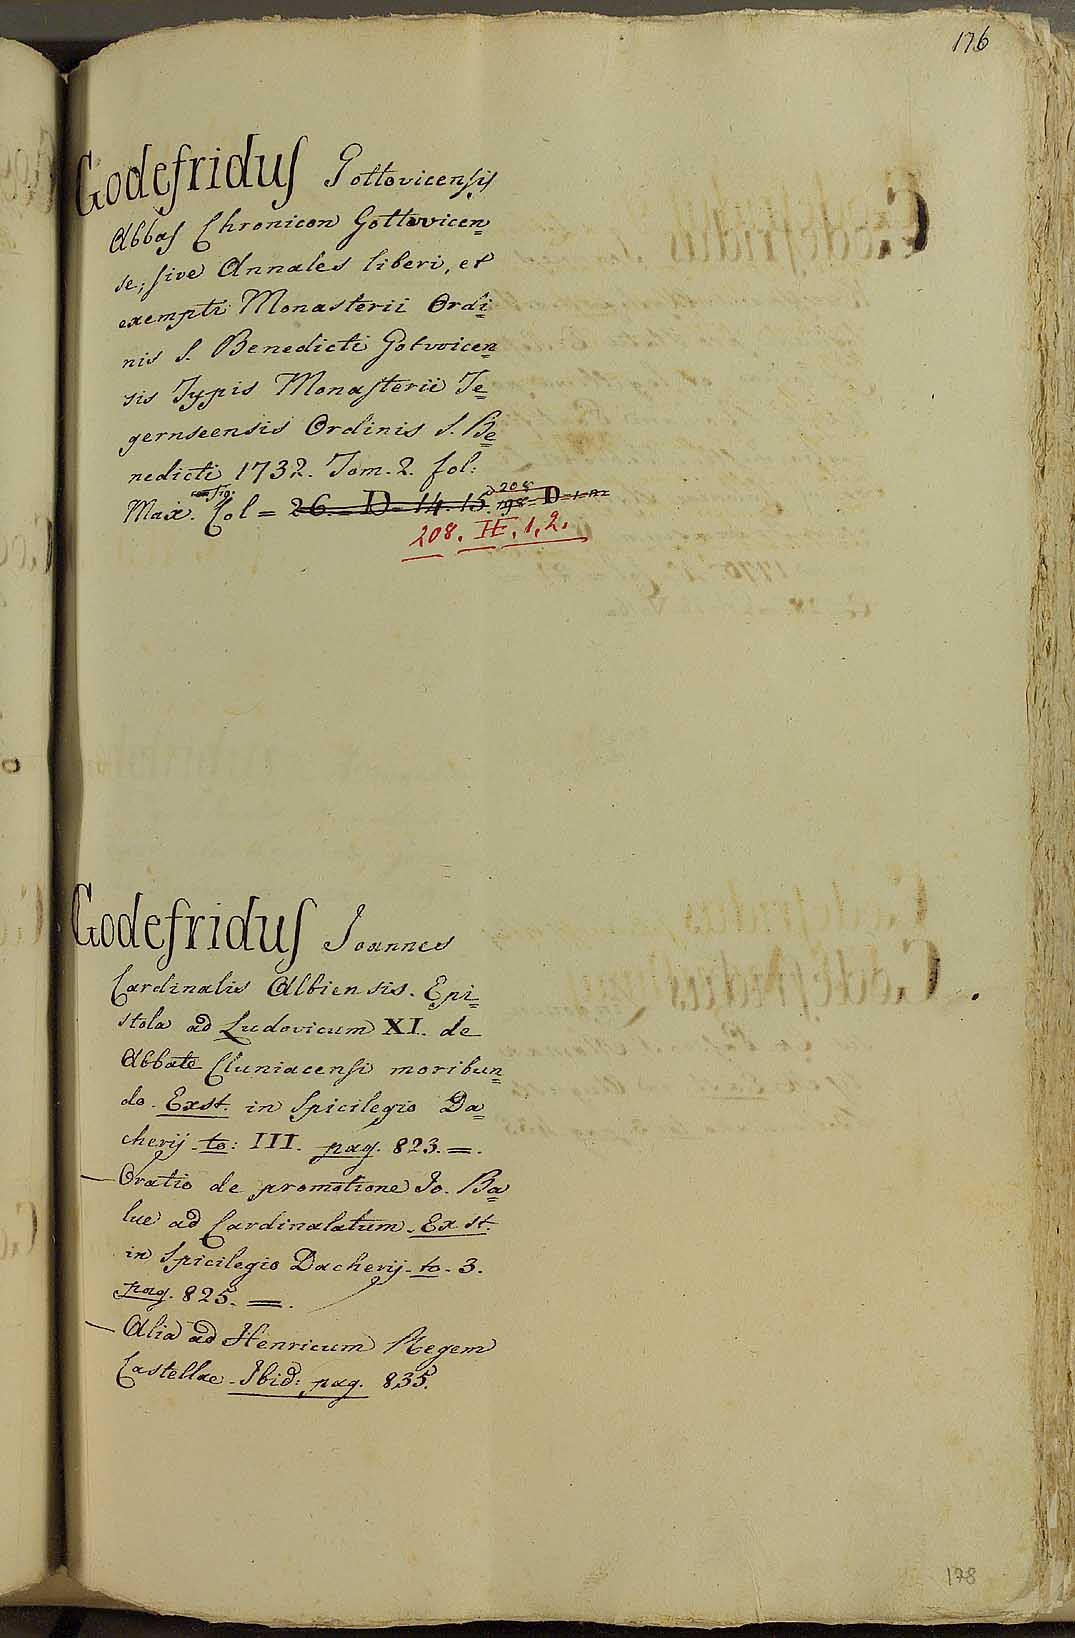 176
Godefridus Gottovicensis
Abbas Chronicon Gottovicen=
se, sive Annales liberi, et
exempti Monasterii Ordi=
nis S. Benedicti Gotvvicen=
sis Typis Monasterii Te=
gernseensis Ordinis S. Be=
nedicti 1732. Tom. 2. fol:
Max. Col = 26. D 14. 15. 208 D 1
208. H. 1, 2.
Godefridus Joannes
Cardinalis Albiensis. Epi=
stola ad Ludovicum XI. de
Abbate Cluniacensi moribun=
do. Exst. in Spicilegio Da=
cherij. to: III. pag. 823. =.
— Oratio de promotione Jo. Ba=
lue ad Cardinalatum. Exst.
in Spicilegio Dacherij. to. 3.
pag. 825. =.
— Alia ad Henricum Regem
Castellae. Ibid: pag. 835.
178